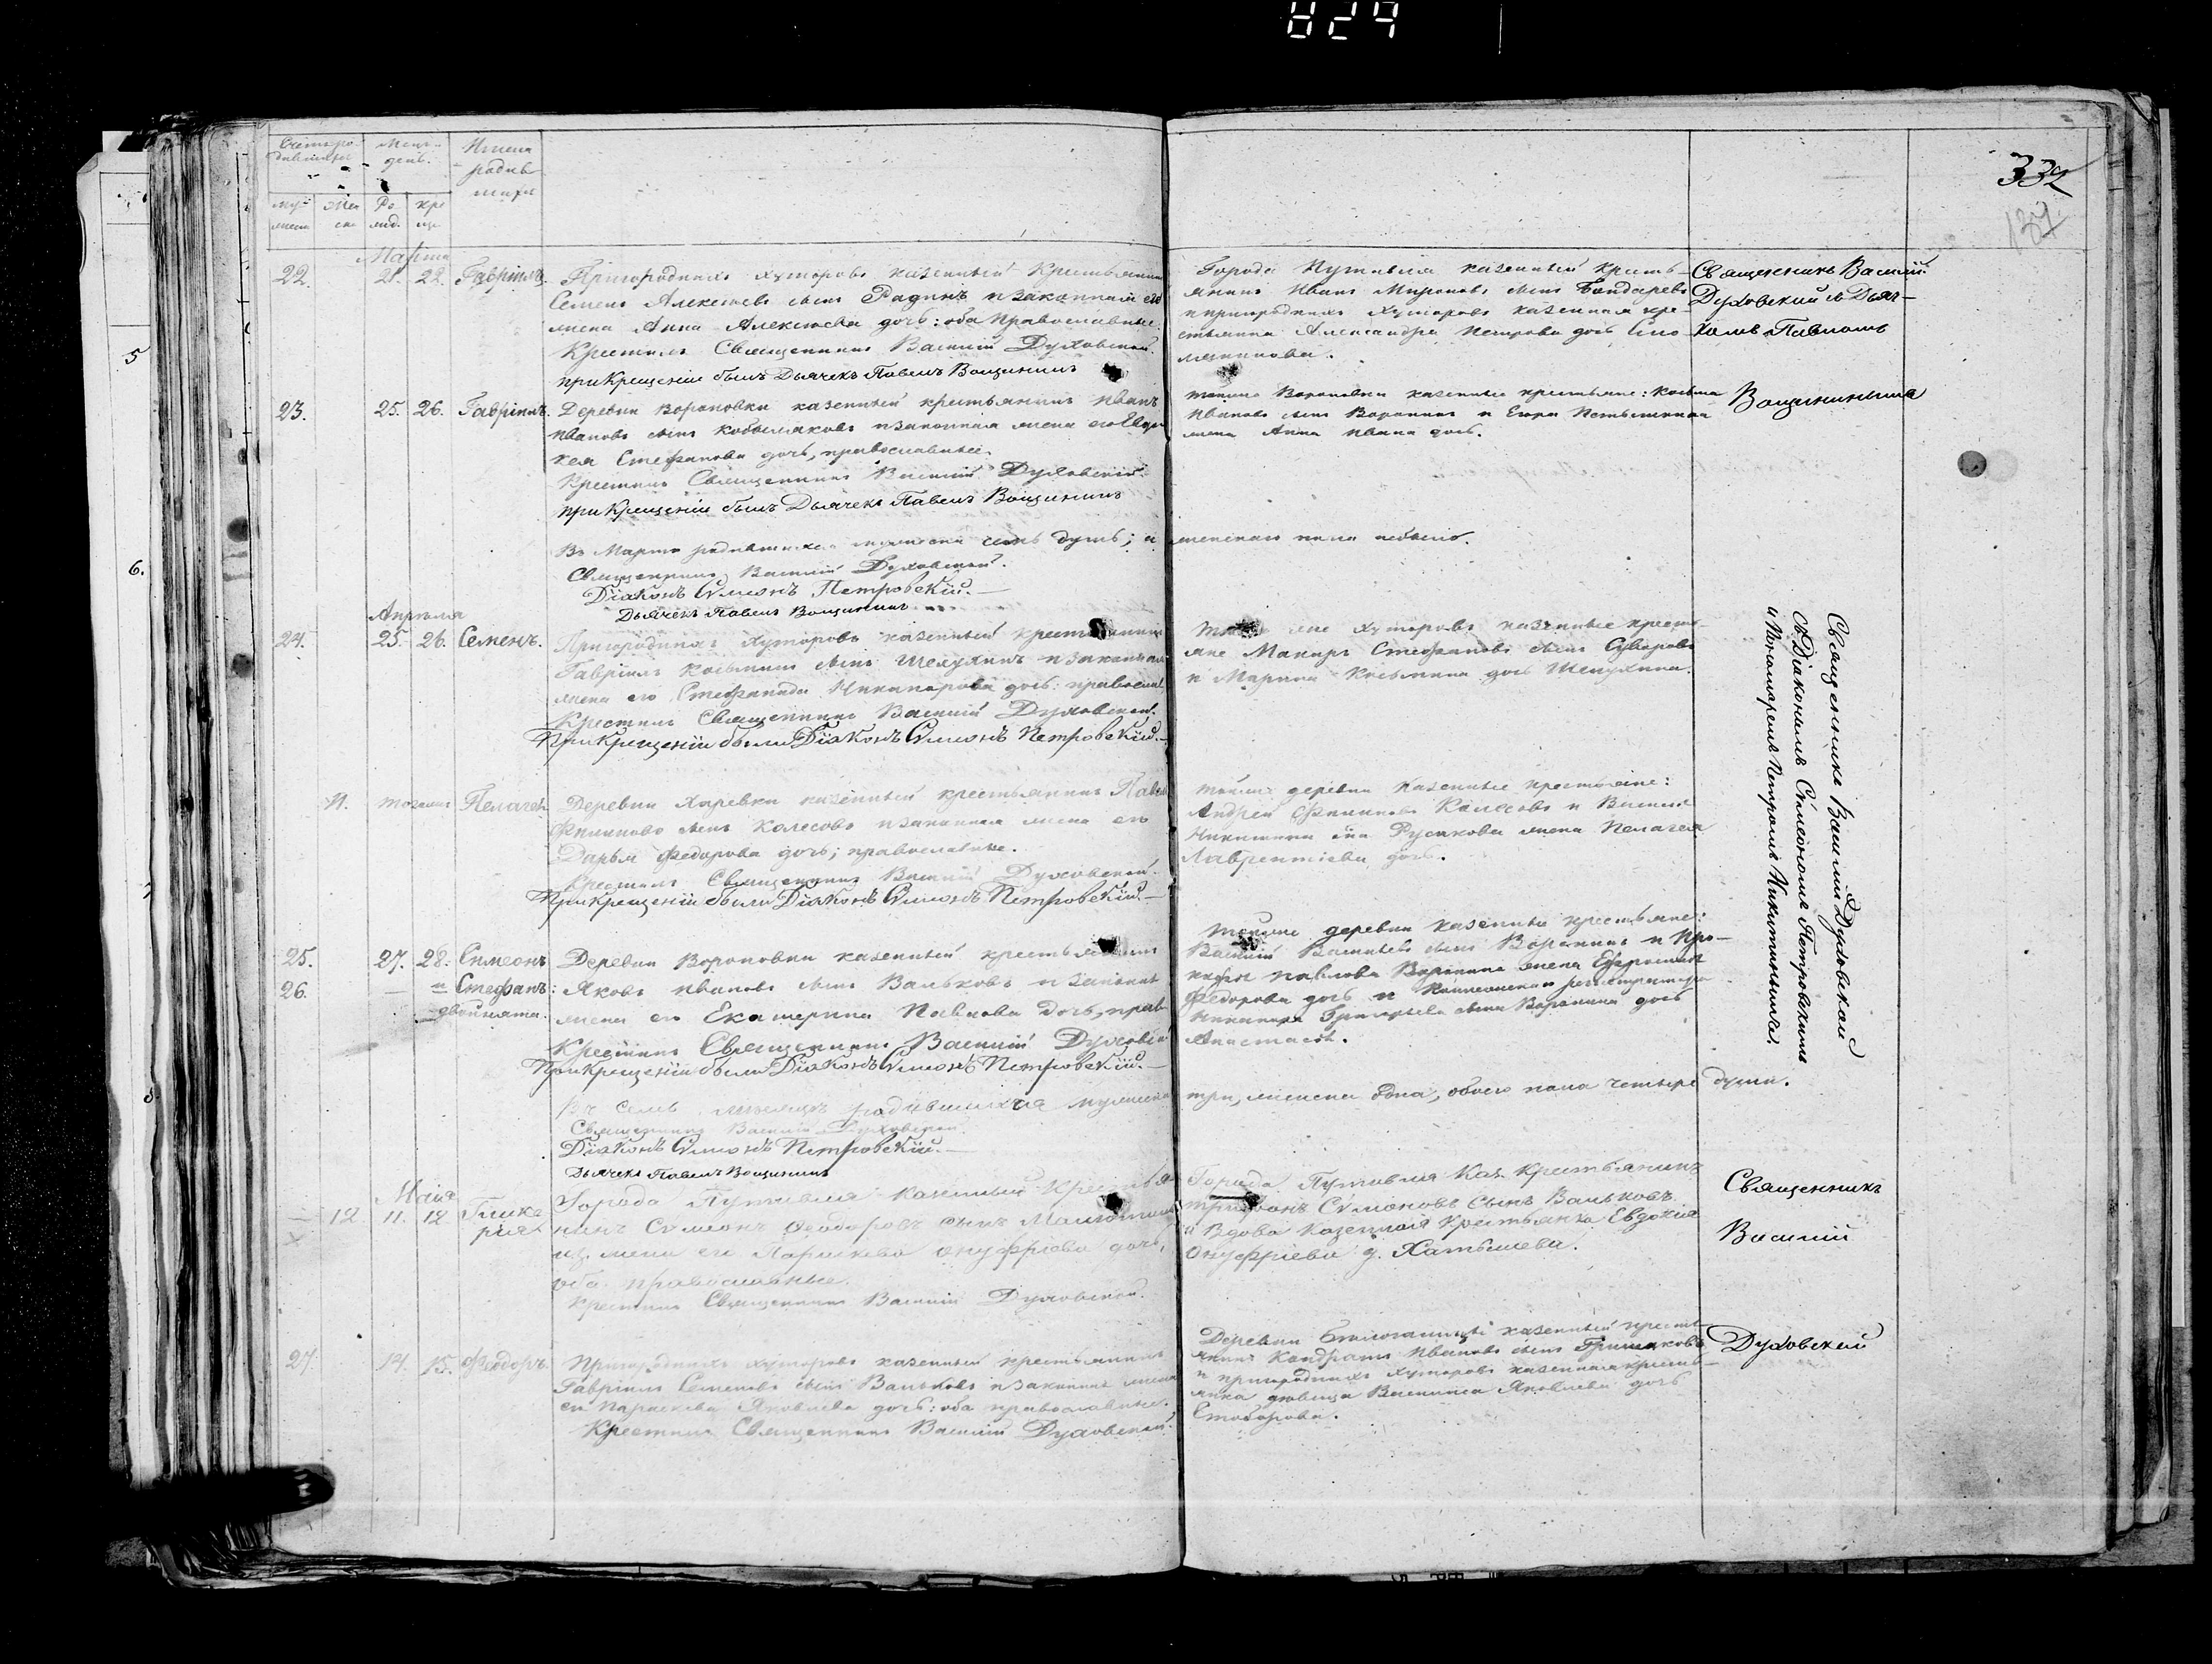 829
332
Счетъ родившихся
Мец. день.
Имена родившихъ
муж
Жен
Ро
кре
Марта
22.
21. 22. Гавріилъ.
Пригородныхъ хуторовъ казенный Крестьянинъ
Семенъ Алексѣевъ сынъ Радинъ и законная его
жена Анна Алексѣева дочь: оба Православные.
Крестилъ Священникъ Василій Духовской.
при Крещеніи былъ Дьячекъ Павелъ Вощининъ
Города Путивля казенный кресть-
янинъ Иванъ Мироновъ сынъ Бондаревъ
и пригородныхъ хуторовъ казенная кре-
стьянка Александра Петрова дочь
Священникъ Василій
Духовский съ Дьяч-
комъ Павломъ
Вощининымъ
23.
25. 26. Гавріилъ.
Деревни Вороновки казенный крестьянинъ Иванъ
Ивановъ сынъ Кобылаковъ и законная жена его Евдо
кея Стефанова дочь, православные.
Крестилъ Священникъ Василій Духовской.
при Крещеніи былъ Дьячекъ Павелъ Вощининъ
тойже Вороновки казенные крестьяне: Косьма
Ивановъ сынъ Воронинъ и Егора
жена Анна Ивана дочь.
Въ Мартѣ родившихся мужеска семь душъ; а женскаго пола небыло.
Священникъ Василій Духовской.
Діаконъ Сѵмеонъ Петровскій.
Дьячекъ Павелъ Вощининъ
Апрѣля
24.
25. 26. Семенъ.
Пригородныхъ хуторовъ казенный крестьянинъ
Гавріилъ Косьминъ сынъ Шелухинъ и законная
жена его Стефанида Никанорова дочь: православ
Крестилъ Священникъ Василій Духовской.
При Крещеніи были Діаконъ Сѵмеонъ Петровскій.
хуторовъ казенные кресть-
яне Макаръ Стефановъ сынъ Суворовъ
и Марина Косьмина дочь Шелухина.
Священникъ Василій Духовской
съ Діакономъ Сѵмеономъ Петровскимъ
и Пономаремъ Петромъ Никитинымъ.
11.
тогоже Пелагея
Деревни Харевки казенный крестьянинъ Павелъ
Филиповъ сынъ Колесовъ и законная жена его
Дарья Федорова дочь; православные.
Крестилъ Священникъ Василій Духовской.
При Крещеніи были Діаконъ Сѵмеонъ Петровскій.
тойже деревни казенные крестьяне:
Андрей Филиповъ Колесовъ и Василія
Никитина сна Русакова жена Пелагея
Лаврентіева дочь.
25.
26.
27. 28. Симеонъ
и Стефанъ:
двойнята.
Деревни Вороновки казенный крестьянинъ
Яковъ Ивановъ сынъ Вальковъ и законная
жена его Екатерина Павлова дочь, прав
Крестилъ Священникъ Василій Духовской
При Крещеніи были Діаконъ Сѵмеонъ Петровскій.
тойже деревни казенные крестьяне:
Василій Васильевъ сынъ Воронинъ и Про-
кофья Павлова Воронина жена Ефросинія
Федорова дочь и Коллежскаго регистратора
Григорьева сына Воронина дочь
Анастасія.
Въ семъ мѣсяцѣ родившихся мужеска три, женска одна, обоего пола четыре души.
Священникъ Василій Духовской
Діаконъ Сѵмеонъ Петровскій.
Дьячекъ Павелъ Вощининъ
Маія
12
11. 12. Глике
рія
Города Путивля казенный Крестья
нинъ Сѵмеонъ Ѳеодоровъ сынъ
жена его Параскева Онуфріева дочь,
оба православные.
Крестилъ Священникъ Василій Духовской.
Города Путивля Каз. Крестьянинъ
Трифонъ Сѵмоновъ Сынъ Вальковъ
и Вдова Казенная Крестьянка Евдокія
Онуфріева д. Хатынева.
Священникъ
Василій
Духовской
27.
14. 15. Феодоръ.
Пригородныхъ хуторовъ казенный крестьянинъ
Гавріилъ Семеновъ сынъ Вальковъ и законная жена
его Параскева Яковлева дочь: оба православные.
Крестилъ Священникъ Василій Духовской.
Деревни казенный кресть-
янинъ Кондратъ Ивановъ сынъ Гришаковъ
и пригородныхъ хуторовъ казенная кресть-
янка девица Василиса Яковлева дочь